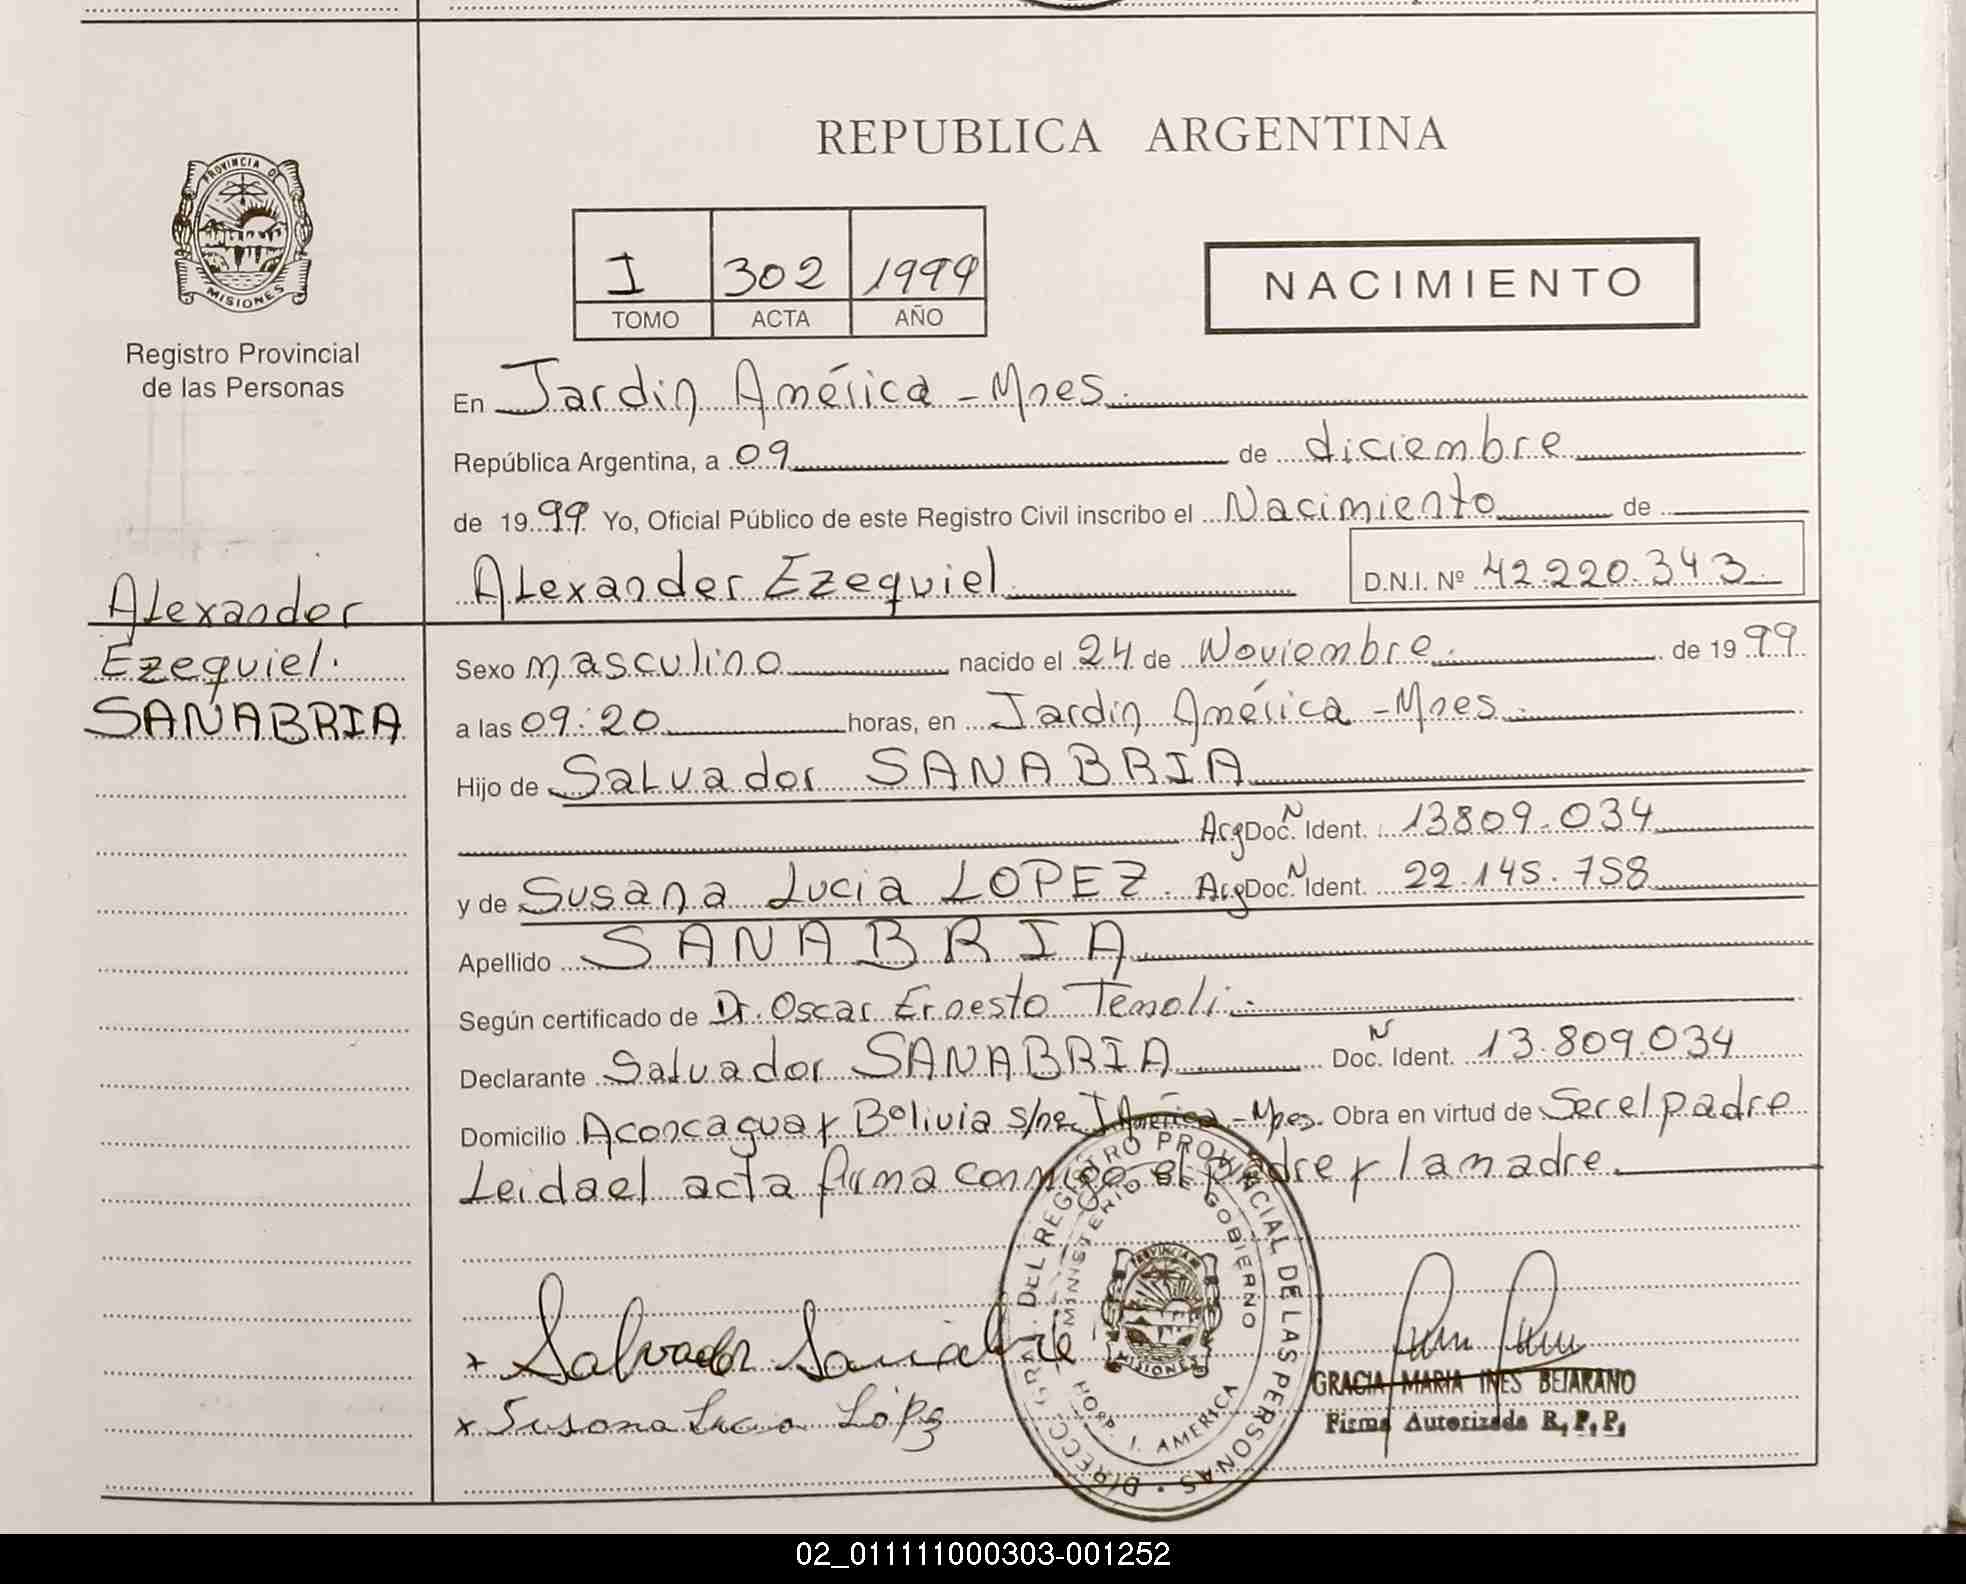 REPUBLICA ARGENTINA
PROVINCIA DE
MISIONES
Registro Provincial
de las Personas
I 302 1999
TOMO ACTA AÑO
NACIMIENTO
En Jardin América - Mnes.
República Argentina, a 09 de diciembre
de 1999 Yo, Oficial Público de este Registro Civil inscribo el Nacimiento de
Alexander Ezequiel D.N.I. Nº 42.220.343
Alexander
Ezequiel.
SANABRIA
Sexo masculino nacido el 24 de Noviembre. de 1999
a las 09:20 horas, en Jardin América - Mnes.
Hijo de Salvador SANABRIA
Arg Doc. N Ident. 13809.034
y de Susana Lucia LOPEZ. Arg Doc. N Ident. 22.145.758
Apellido SANABRIA
Según certificado de Dr. Oscar Ernesto
Declarante Salvador SANABRIA Doc. N Ident. 13.809.034
Domicilio Aconcagua y Bolivia s/nº J América - Mnes. Obra en virtud de Ser el padre
Leida el acta firma conmigo el padre y la madre.
x Salvador Sanabria
x Susana Lucia López
DIRECC. GRAL. DEL REGISTRO PROVINCIAL DE LAS PERSONAS
MINISTERIO DE GOBIERNO
PROVINCIA
MISIONES
HOSP. J. AMERICA
GRACIA MARIA INES BEJARANO
Firma Autorizada R.P.P.
02_011111000303-001252